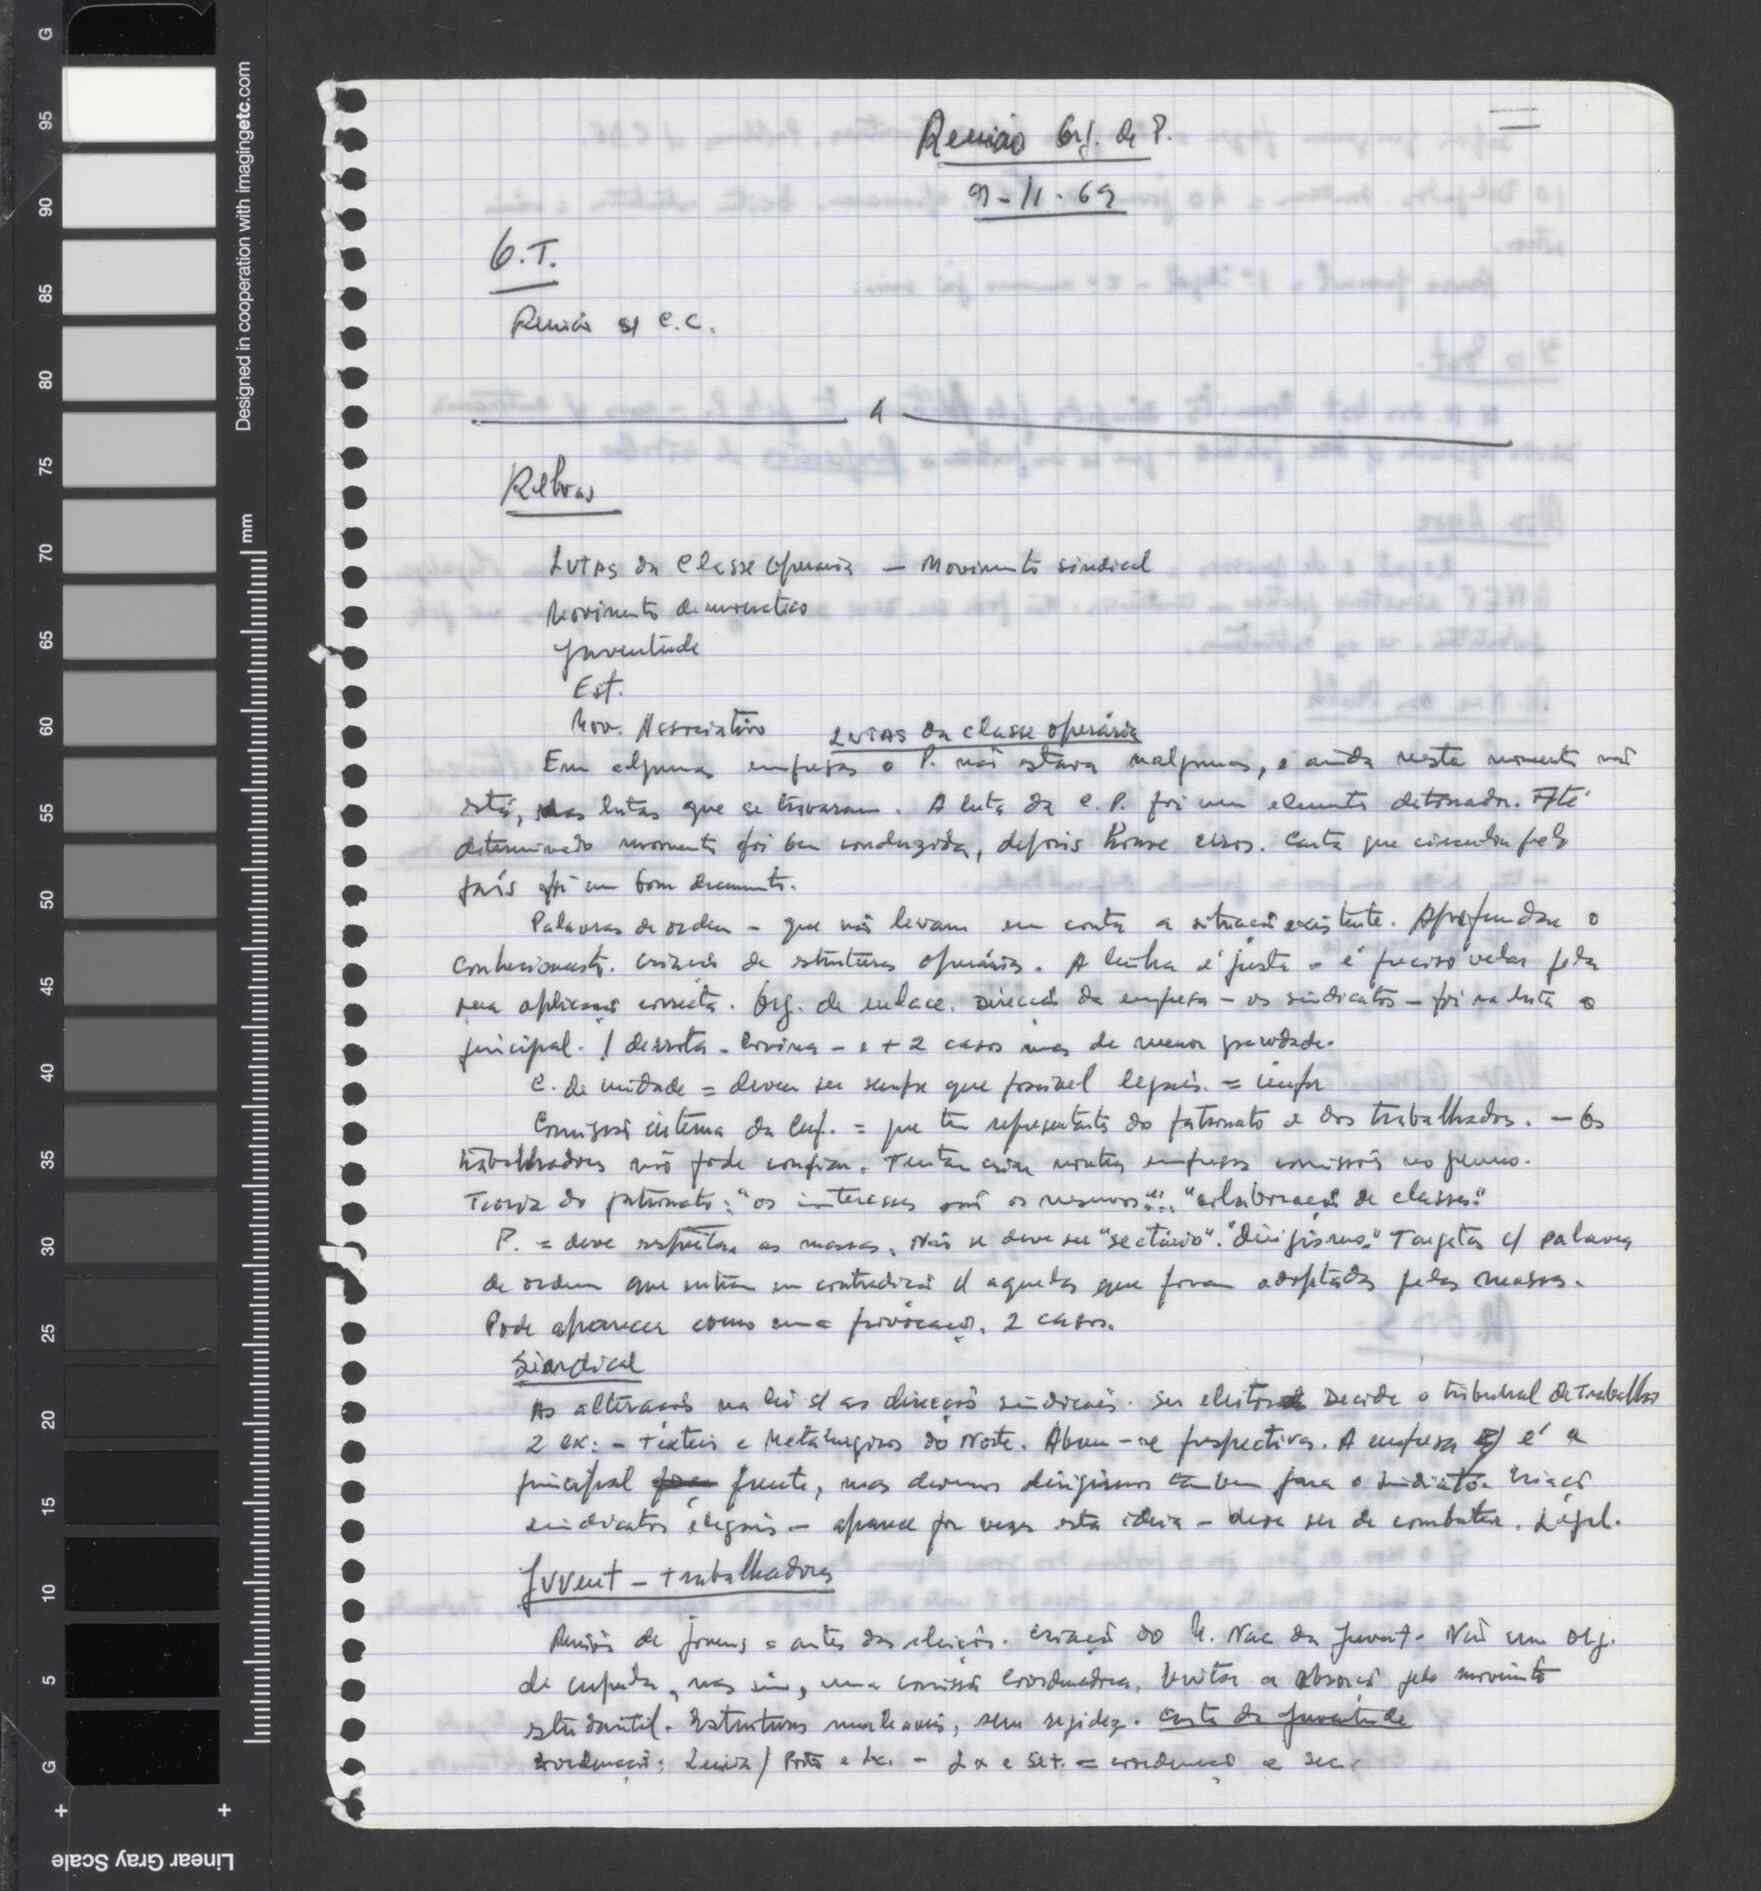 G
95
90
85
80
75
70
65
60
55
50
45
40
35
30
25
20
15
10
5
G
Designed in cooperation with imagingetc.com
mm
Linear Gray Scale
Reunião Org. de P.
9-11-69
O.T.
Reunião s/ C.C.
Lutas da Classe Operária – Movimento sindical
Movimento democrático
Juventude
Est.
Mov. Associativo
Lutas da classe operária
Em algumas empresas o P. não estava nalgumas, e ainda neste momento não
está, nas lutas que se travaram. A luta da C.P. foi um elemento detonador. Até
determinado momento foi bem conduzida, depois houve erros. Carta que circulou pelo
país foi um bom documento.
Palavras de ordem – que não levam em conta a situação existente. Aprofundar o
conhecimento. Criação de estruturas operárias. A linha é justa – é preciso velar pela
sua aplicação correcta. Org. de enlace. Direcção da empresa – os sindicatos – foi na luta o
principal. 1 derrota – Covina – e + 2 casos mas de menor gravidade.
C. de unidade = devem ser sempre que possível legais. =
Comissão interna da Emp. = que tem representantes do patronato e dos trabalhadores. – Os
trabalhadores não pode confiar. Tentar criar noutras empresas comissões no género.
Teoria do patronato: "os interesses são os mesmos"!!! "colaboração de classes"
P. = deve respeitar as massas. Não se deve ser "sectário". "dirigismo." Tarjetas c/ palavras
de ordem que entram em contradição c/ aquelas que foram adoptadas pelas massas.
Pode aparecer como uma provocação. 2 casos.
Sindical
As alterações na lei s/ as direcções sindicais. Ser eleitos Decide o tribunal de Trabalho
2 ex: – Texteis e Metalurgicos do Norte. Abrem-se perspectivas. A empresa é a
principal frente, mas devemos dirigirmos também para o sindicato. Criação
sindicatos ilegais – aparece por vezes esta ideia – deve ser de combater. Legal.
Juvent – trabalhadores
Reunião de jovens = antes das eleições. Criação do M. Nac da Juvent. Não um org.
de cupula, mas sim, uma comissão Coordenadora. Evitar a absorção pelo movimento
estudantil. Estruturas maleaveis, sem rigidez. Carta da Juventude
coordenação: / Porto e Lx. – Lx e Set. = coordenação e sec.